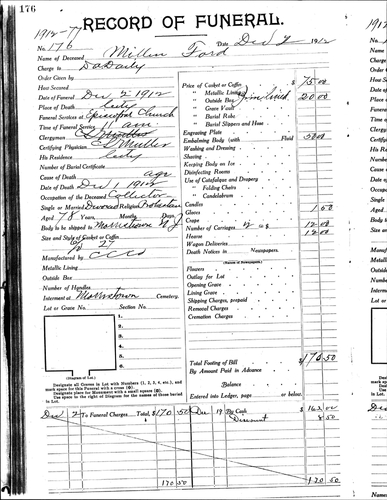 176
RECORD OF FUNERAL.
1912-77
No. 176 Date Dec 2 1912
Name of Deceased Millin Ford
Charge to
Order Given by
How Secured
Date of Funeral Dec 2 1912
Place of Death City
Funeral Services at Episcopal Church
Time of Funeral Service 11 am
Clergyman
Certifying Physician
His Residence City
Number of Burial Certificate
Cause of Death age
Date of Death Dec 1 1912
Occupation of the Deceased Collector
Single or Married Divorced Religion Protestant
Aged 78 Years, Months, Days
Body to be shipped to Morristown N J
Size and Style of Casket or Coffin
6/3 27
Manufactured by
Metallic Lining
Outside Box
Number of Handles
Interment at Morristown Cemetery.
Lot or Grave No. Section No.
1.
2.
3.
4.
5.
6.
(Diagram of Lot.)
Designate all Graves in Lot with Numbers (1, 2, 3, 4, etc.), and
mark space for this Funeral with a cross
Designate place for Monument with a small square
Use space to the right of Diagram for the names of those buried
in Lot.
Price of Casket or Coffin $ 75.00
" Metallic Lining
" Outside Box 20.00
" Grave Vault
" Burial Robe
" Burial Slippers and Hose
Engraving Plate
Embalming Body (with Fluid) 50.00
Washing and Dressing
Shaving
Keeping Body on Ice
Disinfecting Rooms
Use of Catafalque and Drapery
" Folding Chairs
" Candelabrum
Candles
Gloves 1.50
Crape
Number of Carriages 2 @ $ 12.00
Hearse 12.00
Wagon Deliveries
Death Notices in Newspapers
Flowers
Outlay for Lot
Opening Grave
Lining Grave
Shipping Charges, prepaid
Removal Charges
Cremation Charges
Total Footing of Bill $ 170.50
By Amount Paid in Advance
Balance
Entered into Ledger, page or below.
Dec 2 To Funeral Charges Total, $ 170 50 Dec 19 By Cash $ 162.00
Discount 8.50
170 50 170 50